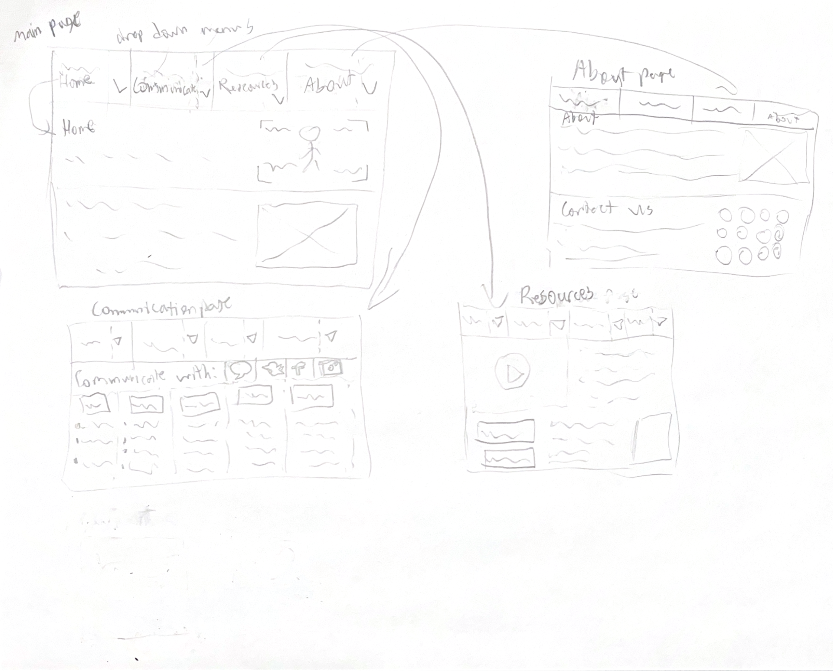 main page
drop down menus
Home
Communicati
Resources
About
Home
About page
About
About
Contact us
Communication page
Communicate with:
Resources